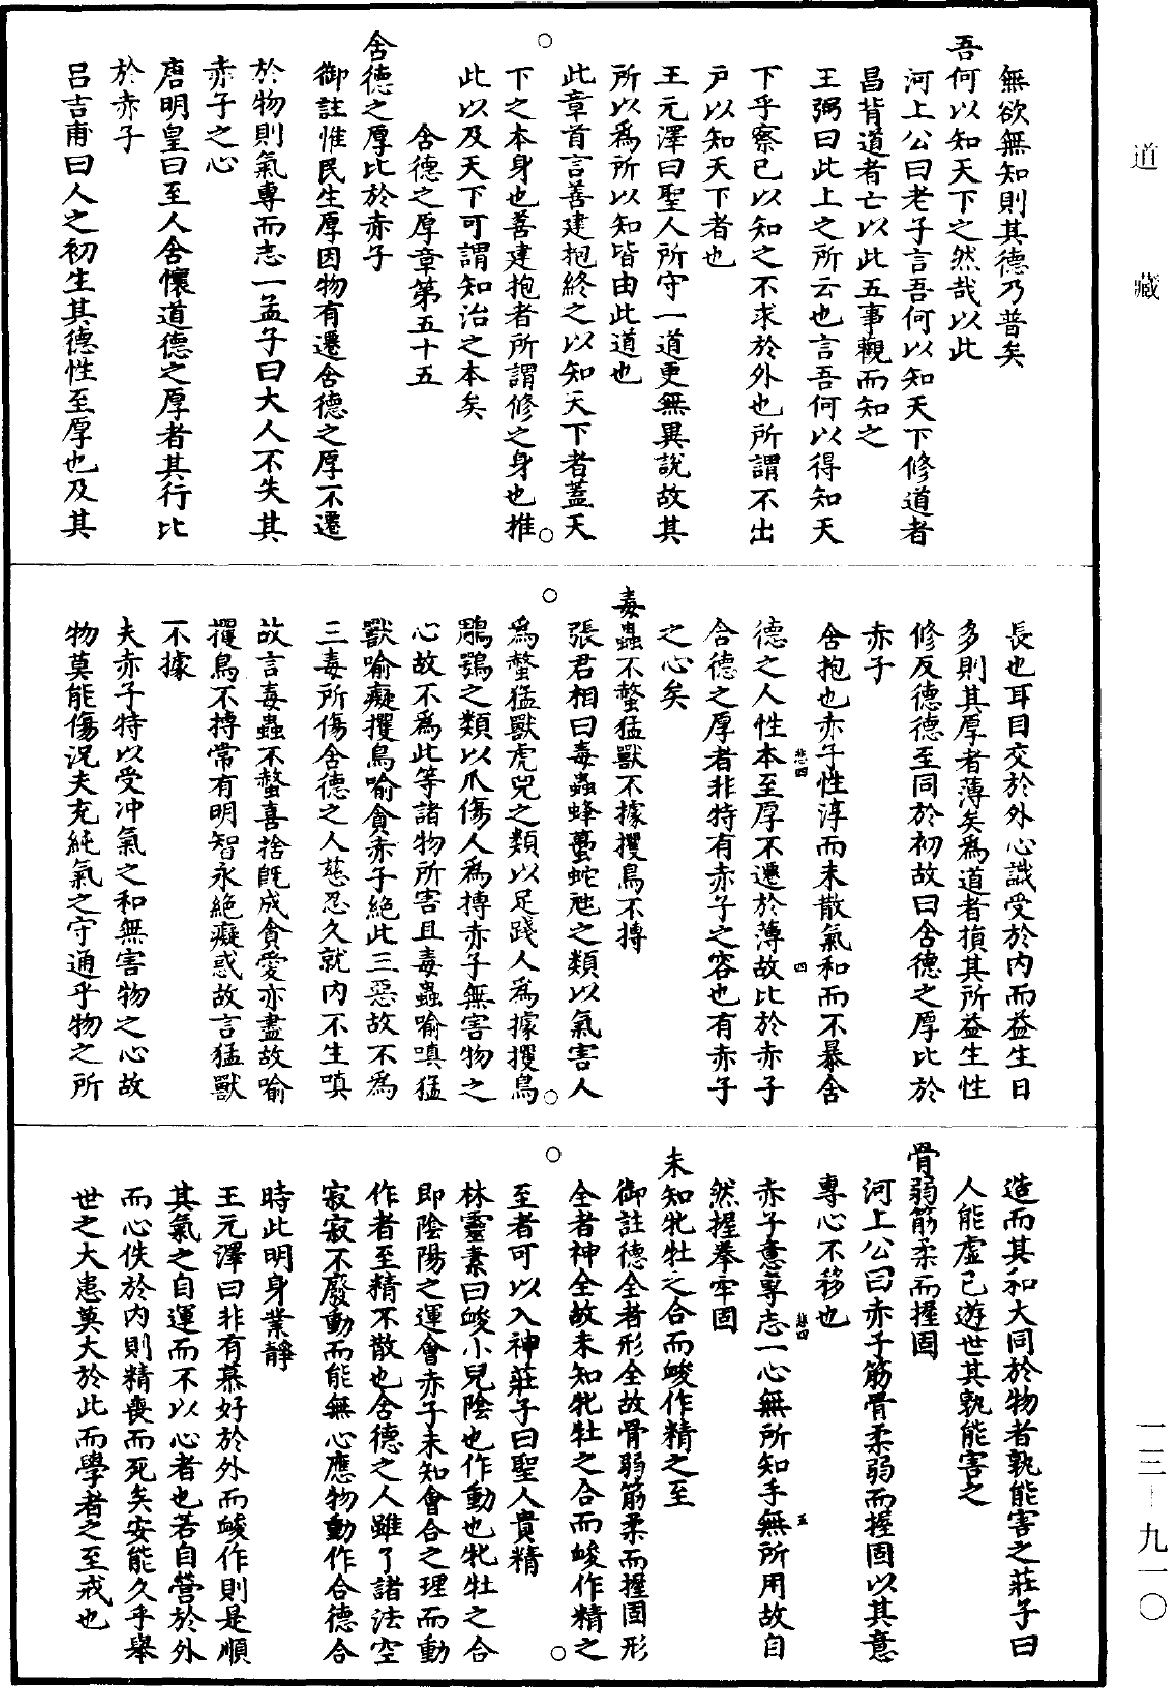 道藏
無欲無知則其德乃普矣
吾何以知天下之然哉以此
河上公曰老子言吾何以知天下修道者
昌背道者亡以此五事觀而知之
王弼曰此上之所云也言吾何以得知天
下乎察己以知之不求於外也所謂不出
戶以知天下者也
王元澤曰聖人所守一道更無異說故其
所以為所以知皆由此道也
此章首言善建抱終之以知天下者蓋天
下之本身也善建抱者所謂修之身也推
此以及天下可謂知治之本矣
含德之厚章第五十五
含德之厚比於赤子
御註惟民生厚因物有遷含德之厚不遷
於物則氣專而志一孟子曰大人不失其
赤子之心
唐明皇曰至人含懷道德之厚者其行比
於赤子
呂吉甫曰人之初生其德性至厚也及其
長也耳目交於外心識受於內而益生日
多則其厚者薄矣為道者損其所益生性
修反德德至同於初故曰含德之厚比於
赤子
含抱也赤子性淳而未散氣和而不暴含
德之人性本至厚不遷於薄故比於赤子
含德之厚者非特有赤子之容也有赤子
之心矣
毒蟲不螫猛獸不據攫鳥不搏
張君相曰毒蟲蜂蠆蛇虺之類以氣害人
為螫猛獸虎兕之類以足踐人為據攫鳥
鵰鶚之類以爪傷人為搏赤子無害物之
心故不為此等諸物所害且毒蟲喻嗔猛
獸喻癡攫鳥喻貪赤子絕此三惡故不為
三毒所傷含德之人慈忍久就內不生嗔
故言毒蟲不螫喜捨既成貪愛亦盡故喻
攫鳥不搏常有明智永絕癡惑故言猛獸
不據
夫赤子特以受冲氣之和無害物之心故
物莫能傷況夫充純氣之守通乎物之所
造而其和大同於物者孰能害之莊子曰
人能虛己遊世其孰能害之
骨弱筋柔而握固
河上公曰赤子筋骨柔弱而握固以其意
專心不移也
赤子意專志一心無所知手無所用故自
然握拳牢固
未知牝牡之合而峻作精之至
御註德全者形全故骨弱筋柔而握固形
全者神全故未知牝牡之合而峻作精之
至者可以入神莊子曰聖人貴精
林靈素曰峻小兒陰也作動也牝牡之合
即陰陽之運會赤子未知會合之理而動
作者至精不散也含德之人雖了諸法空
寂寂不廢動而能無心應物動作合德合
時此明身業靜
王元澤曰非有慕好於外而峻作則是順
其氣之自運而不以心者也若自營於外
而心佚於內則精喪而死矣安能久乎舉
世之大患莫大於此而學者之至戒也
一三－九一〇